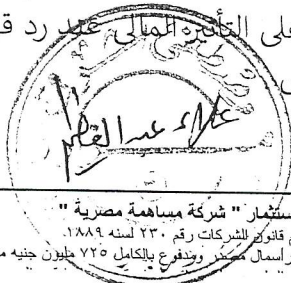 على التأثير المالى عند رد ق
علاء عبد العظيم
ستثمار " شركة مساهمة مصرية "
م قانون الشركات رقم ٢٣٠ لسنه ١٨٨٩.
راسمال مصدر ومدفوع بالكامل ٧٢٥ مليون جنيه م